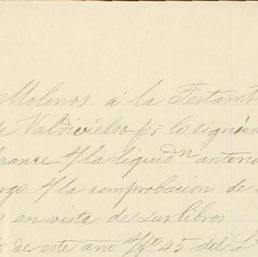 Molinos á la Testam
de Valdivielso por lo siguien
lance s/ la liquidn anterio
rgo s/ la comprobacion de
s en vista de sus libros
de este año s/ fº 45 del L